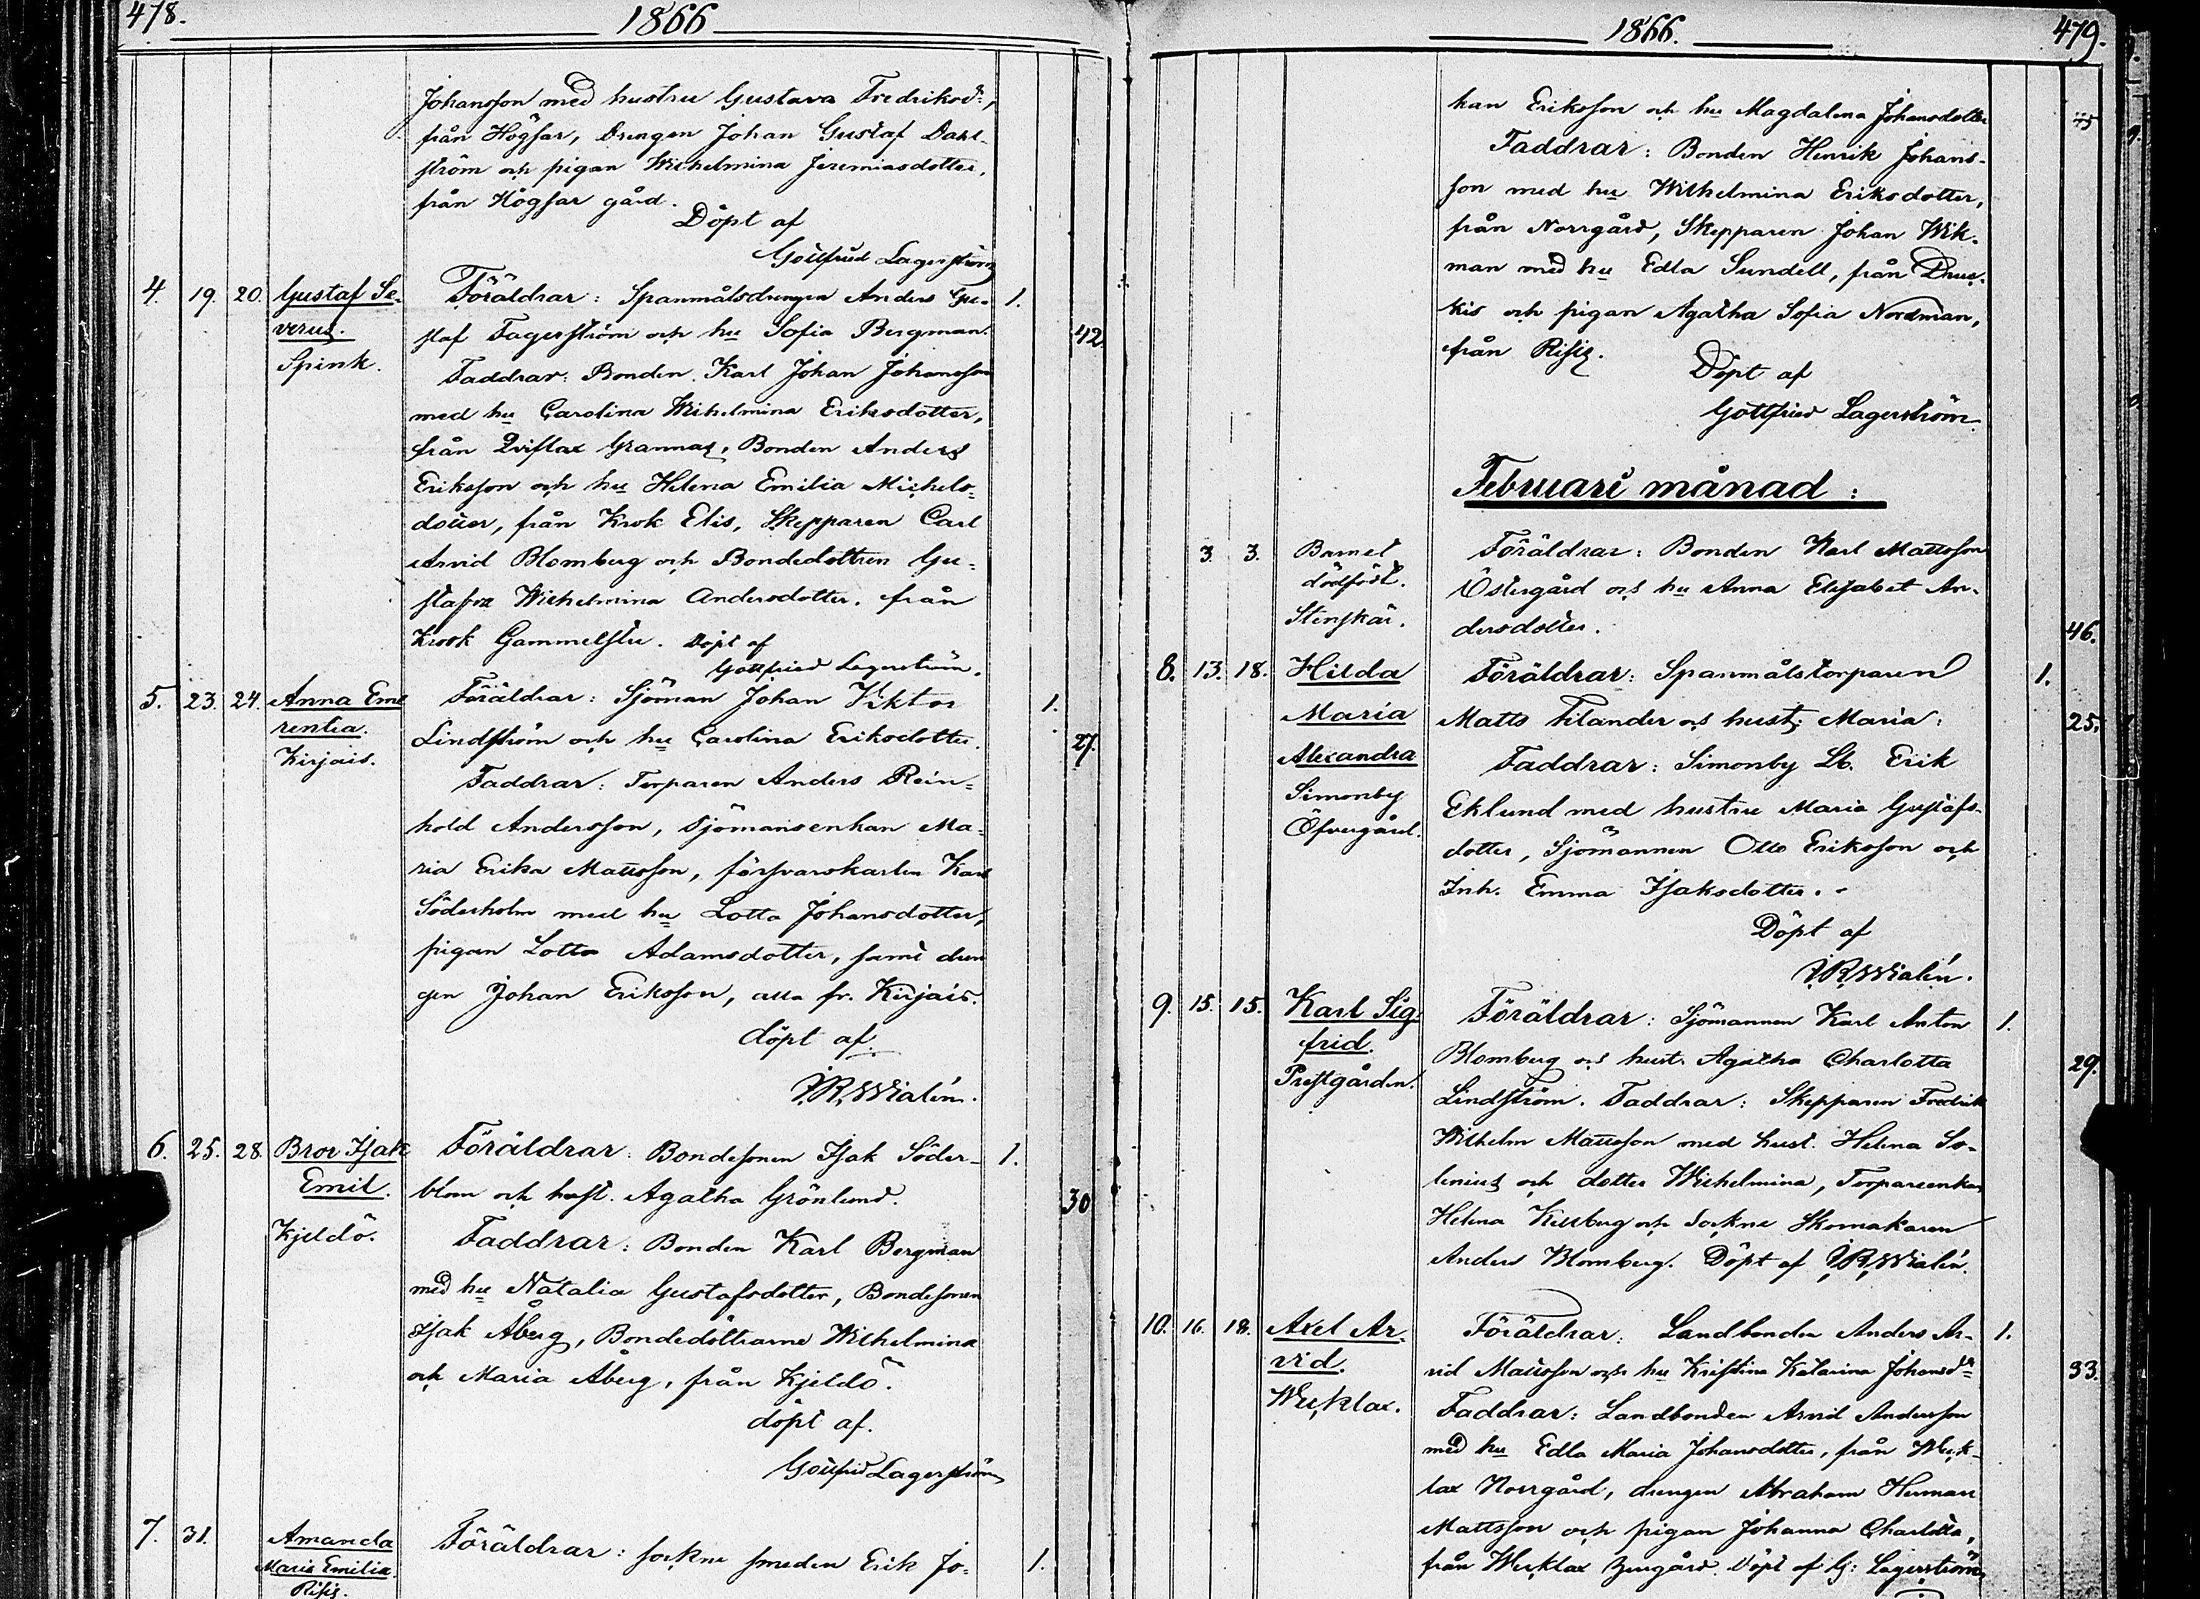 478.
1866
Johansson med hustru Gustava Fredriksdr,
från Högsar, Drengen Johan Gustaf Dahl-
ström och pigan Wilhelmina Jeremiasdotter,
från Högsar gård.
Döpt af
Gottfried Lagerström
4. 19. 20. Gustaf Se-
verus.
Spink.
Föräldrar: Spanmålsdrengen Anders Gu- 1.
staf Fagerström och hu Sofia Bergman. 42.
Faddrar: Bonden Karl Johan Johansson
med hu Carolina Wilhelmina Eriksdotter,
från Qviflax Grannas, Bonden Anders
Eriksson och hu Helena Emilia Michels-
dotter, från Krok Elis, Skepparen Carl
Arvid Blomberg och Bondedottren Gu-
stafva Wilhelmina Andersdotter, från
Krook Gammelstu. Döpt af
Gottfried Lagerström.
5. 23. 24. Anna Eme
rentia.
Kirjais.
Föräldrar: Sjöman Johan Viktor 1.
Lindström och hu Carolina Eriksdotter. 27.
Faddrar: Torparen Anders Rein-
hold Andersson, Sjömansenkan Ma-
ria Erika Mattsson, försvarskarlen Karl
Söderholm med hu Lotta Johansdotter,
pigan Lotta Adamsdotter, samt dren
gen Johan Eriksson, alla fr. Kirjais.
döpt af
J. R. Wialén.
6. 25. 28. Bror Isak
Emil.
Kjeldö.
Föräldrar: Bondesonen Isak Söder- 1.
blom och hust. Agatha Grönlund. 30
Faddrar: Bonden Karl Bergman
med hu Natalia Gustafsdotter, Bondesonen
Isak Åberg, Bondedöttrarne Wilhelmina
och Maria Åberg, från Kjeldö.
döpt af.
Gottfrid Lagerström
7. 31. Amanda
Maria Emilia.
Risis.
Föräldrar: sockne smeden Erik Jo- 1.
1866.
479.
han Eriksson och hu Magdalena Johansdotter 45
Faddrar: Bonden Henrik Johans-
son med hu Wilhelmina Eriksdotter,
från Norrgård, Skepparen Johan Wik-
man med hu Edla Sundell, från
kis och pigan Agatha Sofia Nordman,
från Risis.
Döpt af
Gottfried Lagerström.
Februari månad:
3. 3. Barnet
dödfödt.
Stenskär.
Föräldrar: Bonden Karl Mattsson
Östergård och hu Anna Elisabet An-
dersdotter. 46.
8. 13. 18. Hilda
Maria
Alexandra
Simonby
Öfvergård.
Föräldrar: Spanmålstorparen 1.
Matts Filander och hust: Maria: 25.
Faddrar: Simonby Lb. Erik
Eklund med hustru Maria Gustafs-
dotter, Sjömannen Otto Eriksson och
Inh. Emma Isaksdotter.
Döpt af
J. R. Wialén.
9. 15. 15. Karl Sig-
frid.
Prestgården.
Föräldrar: Sjömannen Karl Anton 1.
Blomberg och hust. Agatha Charlotta 29.
Lindström. Faddrar: Skepparen Fredrik
Wilhelm Mattsson med hust. Helena So-
lenius och dotter Wilhelmina, Torpareenkan
Helena och Sockne Skomakaren
Anders Blomberg. Döpt af J. R. Wialén.
10. 16. 18. Axel Ar-
vid.
Wucklax.
Föräldrar: Landbonden Anders Ar- 1.
vid Mattsson och hu Kristina Katarina Johansdr 33.
Faddrar: Landbonden Arvid Andersson
med hu Edla Maria Johansdotter, från Wuck-
lax Norrgård, drengen Abraham Herman
Mattsson och pigan Johanna Charlotta,
från Wucklax Döpt af G: Lagerström